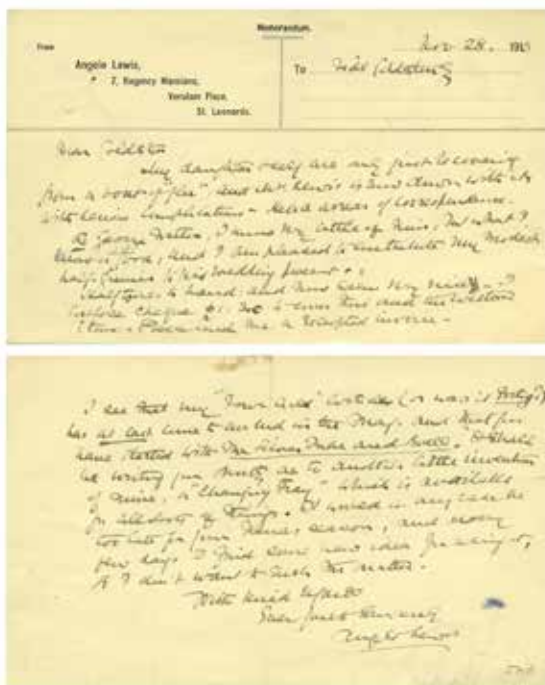 Memorandum.
From
Nov 28. 191
Angelo Lewis,
7, Regency Mansions,
Verulam Place,
St. Leonards.
To Will Goldston
Dear Goldston
My daughter & self are only just recovering
from a bout of "flu", and Mrs. Lewis is now down with it,
with serious complications – Hence arrears of correspondence.
George I know very little of him, but what I
know is good, and I am pleased to contribute my modest
half-guinea to his wedding present
to hand, and now have my I
enclose cheque to cover this and the
item. Please send me a receipted invoice –
I see that my "Town and" article (or was it
has at last come to an end in the Mag. and that you
have started with The
be writing you next as to another little invention
of mine, a "Changing Tray" which is available
for all sorts of things. It would in any case be
too late for your season, and every
few days I find some new idea for using it,
so I don't want to rush the matter.
With kind regards
Yours sincerely
Angelo Lewis